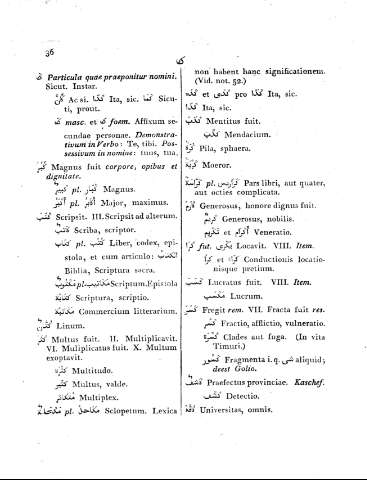 36
ك
ك Particula quae praeponitur nomini.
Sicut. Instar.
كأن Ac si. كذا Ita, sic. كما Sicu-
ti, prout.
ك masc. et ك foem. Affixum se-
cundae personae. Demonstra-
tivum in Verbo: Te, tibi. Pos-
sessivum in nomine: tuus, tua,
كبر Magnus fuit corpore, opibus et
dignitate.
كبير pl. كبار Magnus.
أكبر pl. أكابر Major, maximus.
كتب Scripsit. III. Scripsit ad alterum.
كاتب Scriba, scriptor.
كتاب pl. كتب Liber, codex, epi-
stola, et cum articulo: الكتاب
Biblia, Scriptura sacra.
مكتوب pl. مكاتيب Scriptum. Epistola
كتابة Scriptura, scriptio.
مكاتبة Commercium litterarium.
كتان Linum.
كثر Multus fuit. II. Multiplicavit.
VI. Muliplicatus fuit. X. Multum
exoptavit.
كثرة Multitudo.
كثير Multus, valde.
متكاثر Multiplex.
مكحلة pl. مكاحل Sclopetum. Lexica
non habent hanc significationem.
(Vid. not. 52.)
كذا et كذى pro كذا Ita, sic.
كذا Ita, sic.
كذب Mentitus fuit.
كذب Mendacium.
كرة Pila, sphaera.
كربة Moeror.
كراسة pl. كراريس Pars libri, aut quater,
aut octies complicata.
كرم Generosus, honore dignus fuit.
كريم Generosus, nobilis.
تكريم et أكرام Veneratio.
كرا fut. يكرى Locavit. VIII. Item.
كرا et كراء Conductionis locatio-
nisque pretium.
كسب Lucratus fuit. VIII. Item.
مكسب Lucrum.
كسر Fregit rem. VII. Fracta fuit res.
كسر Fractio, afflictio, vulneratio.
كسرة Clades aut fuga. (In vita
Timuri.)
كسور Fragmenta i. q. شى aliquid;
deest Golio.
كاشف Praefectus provinciae. Kaschef.
كشف Detectio.
كافة Universitas, omnis.